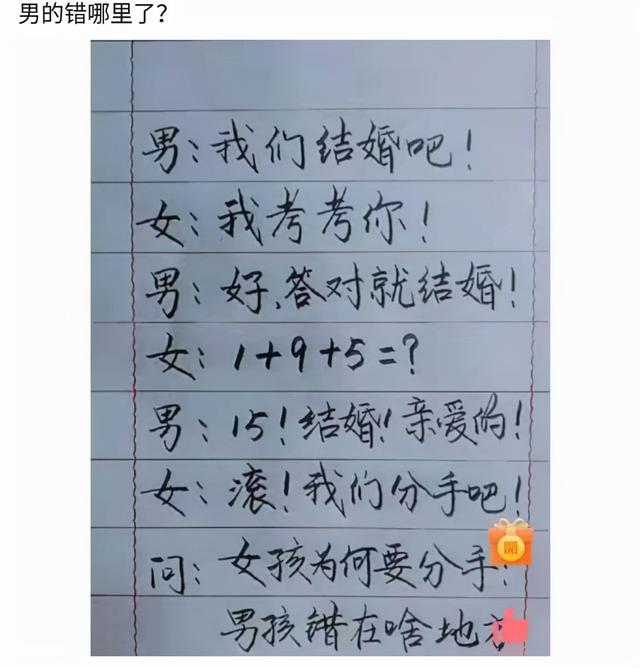 男的错哪里了？
男：我们结婚吧！
女：我考考你！
男：好，答对就结婚！
女：1+9+5=？
男：15！结婚！亲爱的！
女：滚！我们分手吧！
问：女孩为何要分手
男孩错在啥地